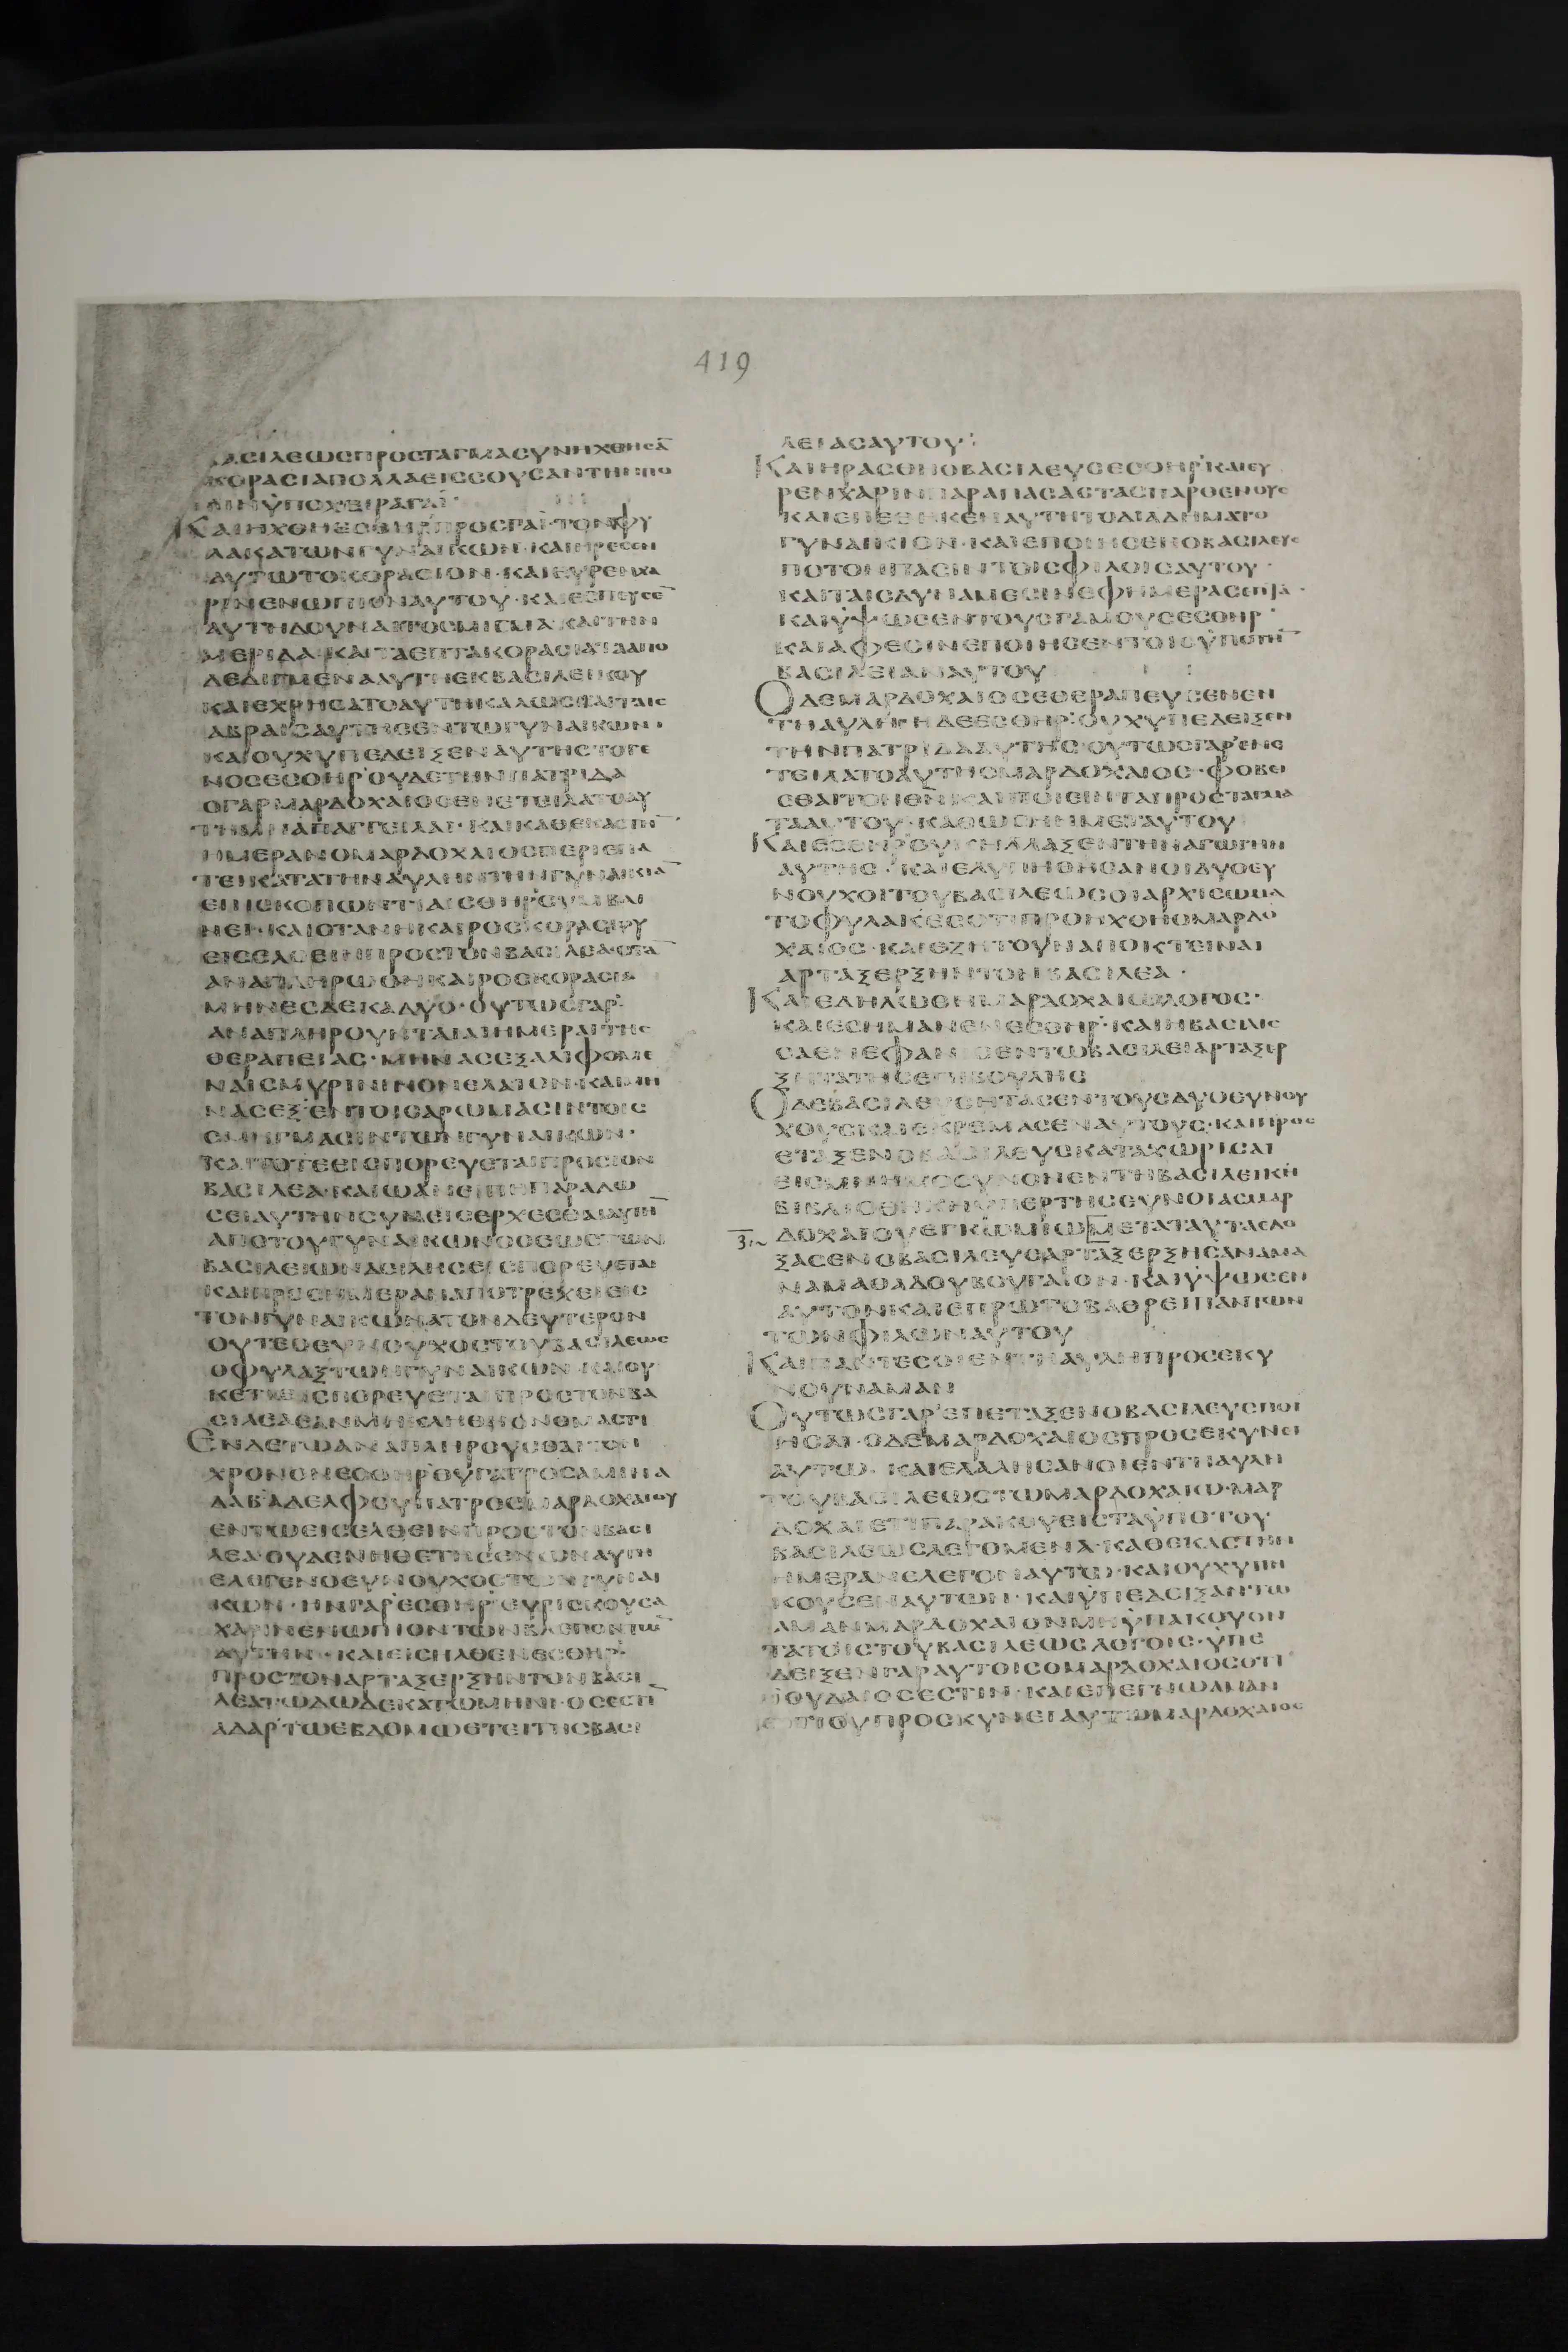 419
ΒΑϹΙΛΕΩϹΠΡΟϹΤΑΓΜΑϹΥΝΗΧΘΗϹΑ̅
ΚΟΡΑϹΙΑΠΟΛΛΑΕΙϹϹΟΥϹΑΝΤΗΝΠΟ
ΛΙΝΫΠΟΧΕΙΡΑΓΑΪ·
ΚΑΙΗΧΘΗΕϹΘΗΡ᾽ΠΡΟϹΓΑΪ·ΤΟΝΦΥ
ΛΑΚΑΤΩΝΓΥΝΑΙΚΩΝ·ΚΑΙΗΡΕϹΕΝ
ΑΥΤΩΤΟΚΟΡΑϹΙΟΝ·ΚΑΙΕΥΡΕΝΧΑ
ΡΙΝΕΝΩΠΙΟΝΑΥΤΟΥ·ΚΑΙΕϹΠΕΥϹΕ̅
ΑΥΤΗΔΟΥΝΑΙΤΟϹΜΙΓΜΑ·ΚΑΙΤΗΝ
ΜΕΡΙΔΑ·ΚΑΙΤΑΕΠΤΑΚΟΡΑϹΙΑΤΑΑΠΟ
ΔΕΔΙΓΜΕΝΑΑΥΤΗΕΚΒΑϹΙΛΕΙΚΟΥ
ΚΑΙΕΧΡΗϹΑΤΟΑΥΤΗΚΑΛΩϹΚΑΙΤΑΙϹ
ΑΒΡΑΙϹΑΥΤΗϹΕΝΤΩΓΥΝΑΙΚΩΝΙ
ΚΑΙΟΥΧΥΠΕΔΕΙΞΕΝΑΥΤΗϹΤΟΓΕ
ΝΟϹΕϹΘΗΡ᾽ΟΥΔΕΤΗΝΠΑΤΡΙΔΑ
ΟΓΑΡΜΑΡΔΟΧΑΙΟϹΕΝΕΤΕΙΛΑΤΟΑΥ
ΤΗΜΗΑΠΑΓΓΕΙΛΑΙ·ΚΑΙΚΑΘΕΚΑϹΤΗ̅
ΗΜΕΡΑΝΟΜΑΡΔΟΧΑΙΟϹΠΕΡΙΕΠΑ
ΤΕΙΚΑΤΑΤΗΝΑΥΛΗΝΤΗΝΓΥΝΑΙΚΙΑ̅
ΕΠΙϹΚΟΠΩΝΤΙΑΙϹΘΗΡ᾽ϹΥΜΒΑΙ
ΝΕΙ·ΚΑΙΟΤΑΝΗΚΑΙΡΟϹΚΟΡΑϹΙΟΥ
ΕΙϹΕΛΘΕΙΝΠΡΟϹΤΟΝΒΑϹΙΛΕΑ·ΟΤΑ̅
ΑΝΑΠΛΗΡΩΘΗΚΑΙΡΟϹΚΟΡΑϹΙΩ
ΜΗΝΕϹΔΕΚΑΔΥΟ·ΟΥΤΩϹΓΑΡ᾽
ΑΝΑΠΛΗΡΟΥΝΤΑΙΑΙΗΜΕΡΑΙΤΗϹ
ΘΕΡΑΠΕΙΑϹ·ΜΗΝΑϹΕΞΑΛΙΦΟΜΕ
ΝΑΙϹΜΥΡΙΝΙΝΟΝΕΛΑΙΟΝ·ΚΑΙΜΗ
ΝΑϹΕΞ᾽ΕΝΤΟΙϹΑΡΩΜΑϹΙΝΤΟΙϹ
ϹΜΗΓΜΑϹΙΝΤΩΝΓΥΝΑΙΚΩΝ·
ΚΑΙΤΟΤΕΕΙϹΠΟΡΕΥΕΤΑΙΠΡΟϹΤΟΝ
ΒΑϹΙΛΕΑ·ΚΑΙΩΑΝΕΙΠΗΠΑΡΑΔΩ
ϹΕΙΑΥΤΗΝϹΥΝΕΙϹΕΡΧΕϹΘΑΙΑΥΤΗ̅
ΑΠΟΤΟΥΓΥΝΑΙΚΩΝΟϹΕΩϹΤΩΝ
ΒΑϹΙΛΕΙΩΝΔΙΛΗϹΕΙϹΠΟΡΕΥΕΤΑΙ
ΚΑΙΠΡΟϹΗΜΕΡΑΝΑΠΟΤΡΕΧΕΙΕΙϹ
ΤΟΝΓΥΝΑΙΚΩΝΑΤΟΝΔΕΥΤΕΡΟΝ
ΟΥΤΕΘΕΥΝΟΥΧΟϹΤΟΥΒΑϹΙΛΕΩϹ
ΟΦΥΛΑΞΤΩΝΓΥΝΑΙΚΩΝ·ΚΑΙΟΥ
ΚΕΤΙΕΙϹΠΟΡΕΥΕΤΑΙΠΡΟϹΤΟΝΒΑ
ϹΙΛΕΑΕΑΝΜΗΚΛΗΘΗΟΝΟΜΑϹΤΙ
ΕΝΔΕΤΩΑΝΑΠΛΗΡΟΥϹΘΑΙΤΟΝ
ΧΡΟΝΟΝΕϹΘΗΡ᾽ΘΥΓΑΤΡΟϹΑΜΙΝΑ
ΔΑΒ᾽ΑΔΕΛΦΟΥΠΑΤΡΟϹΜΑΡΔΟΧΑΙΟΥ
ΕΝΤΩΕΙϹΕΛΘΕΙΝΠΡΟϹΤΟΝΒΑϹΙ
ΛΕΑ·ΟΥΔΕΝΗΘΕΤΗϹΕΝΩΝΑΥΤΗ
ΕΛΕΓΕΝΟΕΥΝΟΥΧΟϹΤΩΝΓΥΝΑΙ
ΚΩΝ·ΗΝΓΑΡ᾽ΕϹΘΗΡ᾽ΕΥΡΙϹΚΟΥϹΑ
ΧΑΡΙΝΕΝΩΠΙΟΝΤΩΝΒΛΕΠΟΝΤΩ̅
ΑΥΤΗΝ·ΚΑΙΕΙϹΗΛΘΕΝΕϹΘΗΡ᾽
ΠΡΟϹΤΟΝΑΡΤΑΞΕΡΞΗΝΤΟΝΒΑϹΙ
ΛΕΑΤΩΔΩΔΕΚΑΤΩΜΗΝΙ·ΟϹΕϹΤΙ̅
ΑΔΑΡ᾽ΤΩΕΒΔΟΜΩΕΤΕΙΤΗϹΒΑϹΙ
ΛΕΙΑϹΑΥΤΟΥ:
ΚΑΙΗΡΑϹΘΗΟΒΑϹΙΛΕΥϹΕϹΘΗΡ᾽ΚΑΙΕΥ
ΡΕΝΧΑΡΙΝΠΑΡΑΠΑϹΑϹΤΑϹΠΑΡΘΕΝΟΥϹ
ΚΑΙΕΠΕΘΗΚΕΝΑΥΤΗΤΟΔΙΑΔΗΜΑΤΟ
ΓΥΝΑΙΚΙΟΝ·ΚΑΙΕΠΟΙΗϹΕΝΟΒΑϹΙΛΕΥϹ
ΠΟΤΟΝΠΑϹΙΝΤΟΙϹΦΙΛΟΙϹΑΥΤΟΥ·
ΚΑΙΤΑΙϹΔΥΝΑΜΕϹΙΝΕΦΗΜΕΡΑϹΕΠΤΑ·
ΚΑΙΫΨΩϹΕΝΤΟΥϹΓΑΜΟΥϹΕϹΘΗΡ᾽
ΚΑΙΑΦΕϹΙΝΕΠΟΙΗϹΕΝΤΟΙϹΫΠΟΤΗ̅
ΒΑϹΙΛΕΙΑΝΑΥΤΟΥ
ΟΔΕΜΑΡΔΟΧΑΙΟϹΕΘΕΡΑΠΕΥϹΕΝΕΝ
ΤΗΑΥΛΗ·ΗΔΕΕϹΘΗΡ᾽ΟΥΧΥΠΕΔΕΙΞΕΝ
ΤΗΝΠΑΤΡΙΔΑΑΥΤΗϹ·ΟΥΤΩϹΓΑΡ᾽ΕΝΕ
ΤΕΙΛΑΤΟΑΥΤΗΟΜΑΡΔΟΧΑΙΟϹ·ΦΟΒΕΙ
ϹΘΑΙΤΟΝΘ̅Ν̅ΚΑΙΠΟΙΕΙΝΤΑΠΡΟϹΤΑΓΜΑ
ΤΑΑΥΤΟΥ·ΚΑΘΩϹΗΝΜΕΤΑΥΤΟΥ
ΚΑΙΕϹΘΗΡ᾽ΟΥΚΗΛΛΑΞΕΝΤΗΝΑΓΩΓΗΝ
ΑΥΤΗϹ·ΚΑΙΕΛΥΠΗΘΗϹΑΝΟΙΔΥΟΕΥ
ΝΟΥΧΟΙΤΟΥΒΑϹΙΛΕΩϹΟΙΑΡΧΙϹΩΜΑ
ΤΟΦΥΛΑΚΕϹΟΤΙΠΡΟΗΧΘΗΟΜΑΡΔΟ
ΧΑΙΟϹ·ΚΑΙΕΖΗΤΟΥΝΑΠΟΚΤΕΙΝΑΙ
ΑΡΤΑΞΕΡΞΗΝΤΟΝΒΑϹΙΛΕΑ·
ΚΑΙΕΔΗΛΩΘΗΜΑΡΔΟΧΑΙΩΛΟΓΟϹ·
ΚΑΙΕϹΗΜΑΝΕΝΕϹΘΗΡ᾽·ΚΑΙΗΒΑϹΙΛΙϹ
ϹΑΕΝΕΦΑΝΙϹΕΝΤΩΒΑϹΙΛΕΙΑΡΤΑΞΕΡ
ΞΗΤΑΤΗϹΕΠΙΒΟΥΛΗϹ
ΟΔΕΒΑϹΙΛΕΥϹΗΤΑϹΕΝΤΟΥϹΔΥΟΕΥΝΟΥ
ΧΟΥϹΚΑΙΕΚΡΕΜΑϹΕΝΑΥΤΟΥϹ·ΚΑΙΠΡΟϹ
ΕΤΑΞΕΝΟΒΑϹΙΛΕΥϹΚΑΤΑΧΩΡΙϹΑΙ
ΕΙϹΜΝΗΜΟϹΥΝΟΝΕΝΤΗΒΑϹΙΛΕΙΚΗ
ΒΙΒΛΙΟΘΗΚΗΥΠΕΡΤΗϹΕΥΝΟΙΑϹΜΑΡ
ΔΟΧΑΙΟΥΕΓΚΩΜΙΩΜΕΤΑΤΑΥΤΑΕΔΟ
ΞΑϹΕΝΟΒΑϹΙΛΕΥϹΑΡΤΑΞΕΡΞΗϹΑΝΑΜΑ
ΝΑΜΑΘΑΔΟΥΒΟΥΓΑΙΟΝ·ΚΑΙΫΨΩϹΕΝ
ΑΥΤΟΝΚΑΙΕΠΡΩΤΟΒΑΘΡΕΙΠΑΝΤΩΝ
ΤΩΝΦΙΛΩΝΑΥΤΟΥ
ΚΑΙΠΑΝΤΕϹΟΙΕΝΤΗΑΥΛΗΠΡΟϹΕΚΥ
ΝΟΥΝΑΜΑΝ
ΟΥΤΩϹΓΑΡ᾽ΕΠΕΤΑΞΕΝΟΒΑϹΙΛΕΥϹΠΟΙ
ΗϹΑΙ·ΟΔΕΜΑΡΔΟΧΑΙΟϹΠΡΟϹΕΚΥΝΕΙ
ΑΥΤΩ·ΚΑΙΕΛΑΛΗϹΑΝΟΙΕΝΤΗΑΥΛΗ
ΤΟΥΒΑϹΙΛΕΩϹΤΩΜΑΡΔΟΧΑΙΩ·ΜΑΡ
ΔΟΧΑΙΕΤΙΠΑΡΑΚΟΥΕΙϹΤΑΫΠΟΤΟΥ
ΒΑϹΙΛΕΩϹΛΕΓΟΜΕΝΑ·ΚΑΘΕΚΑϹΤΗΝ
ΗΜΕΡΑΝΕΛΕΓΟΝΑΥΤΩ·ΚΑΙΟΥΧΥΠΗ
ΚΟΥϹΕΝΑΥΤΩΝ·ΚΑΙΫΠΕΔΕΙΞΑΝΤΩ
ΑΜΑΝΜΑΡΔΟΧΑΙΟΝΜΗΫΠΑΚΟΥΟΝ
ΤΑΤΟΙϹΤΟΥΒΑϹΙΛΕΩϹΛΟΓΟΙϹ·ΫΠΕ
ΔΕΙΞΕΝΓΑΡΑΥΤΟΙϹΟΜΑΡΔΟΧΑΙΟϹΟΤΙ
ΙΟΥΔΑΙΟϹΕϹΤΙΝ·ΚΑΙΕΠΕΓΝΩΑΜΑΝ
ΟΤΙΟΥΠΡΟϹΚΥΝΕΙΑΥΤΩΜΑΡΔΟΧΑΙΟϹ